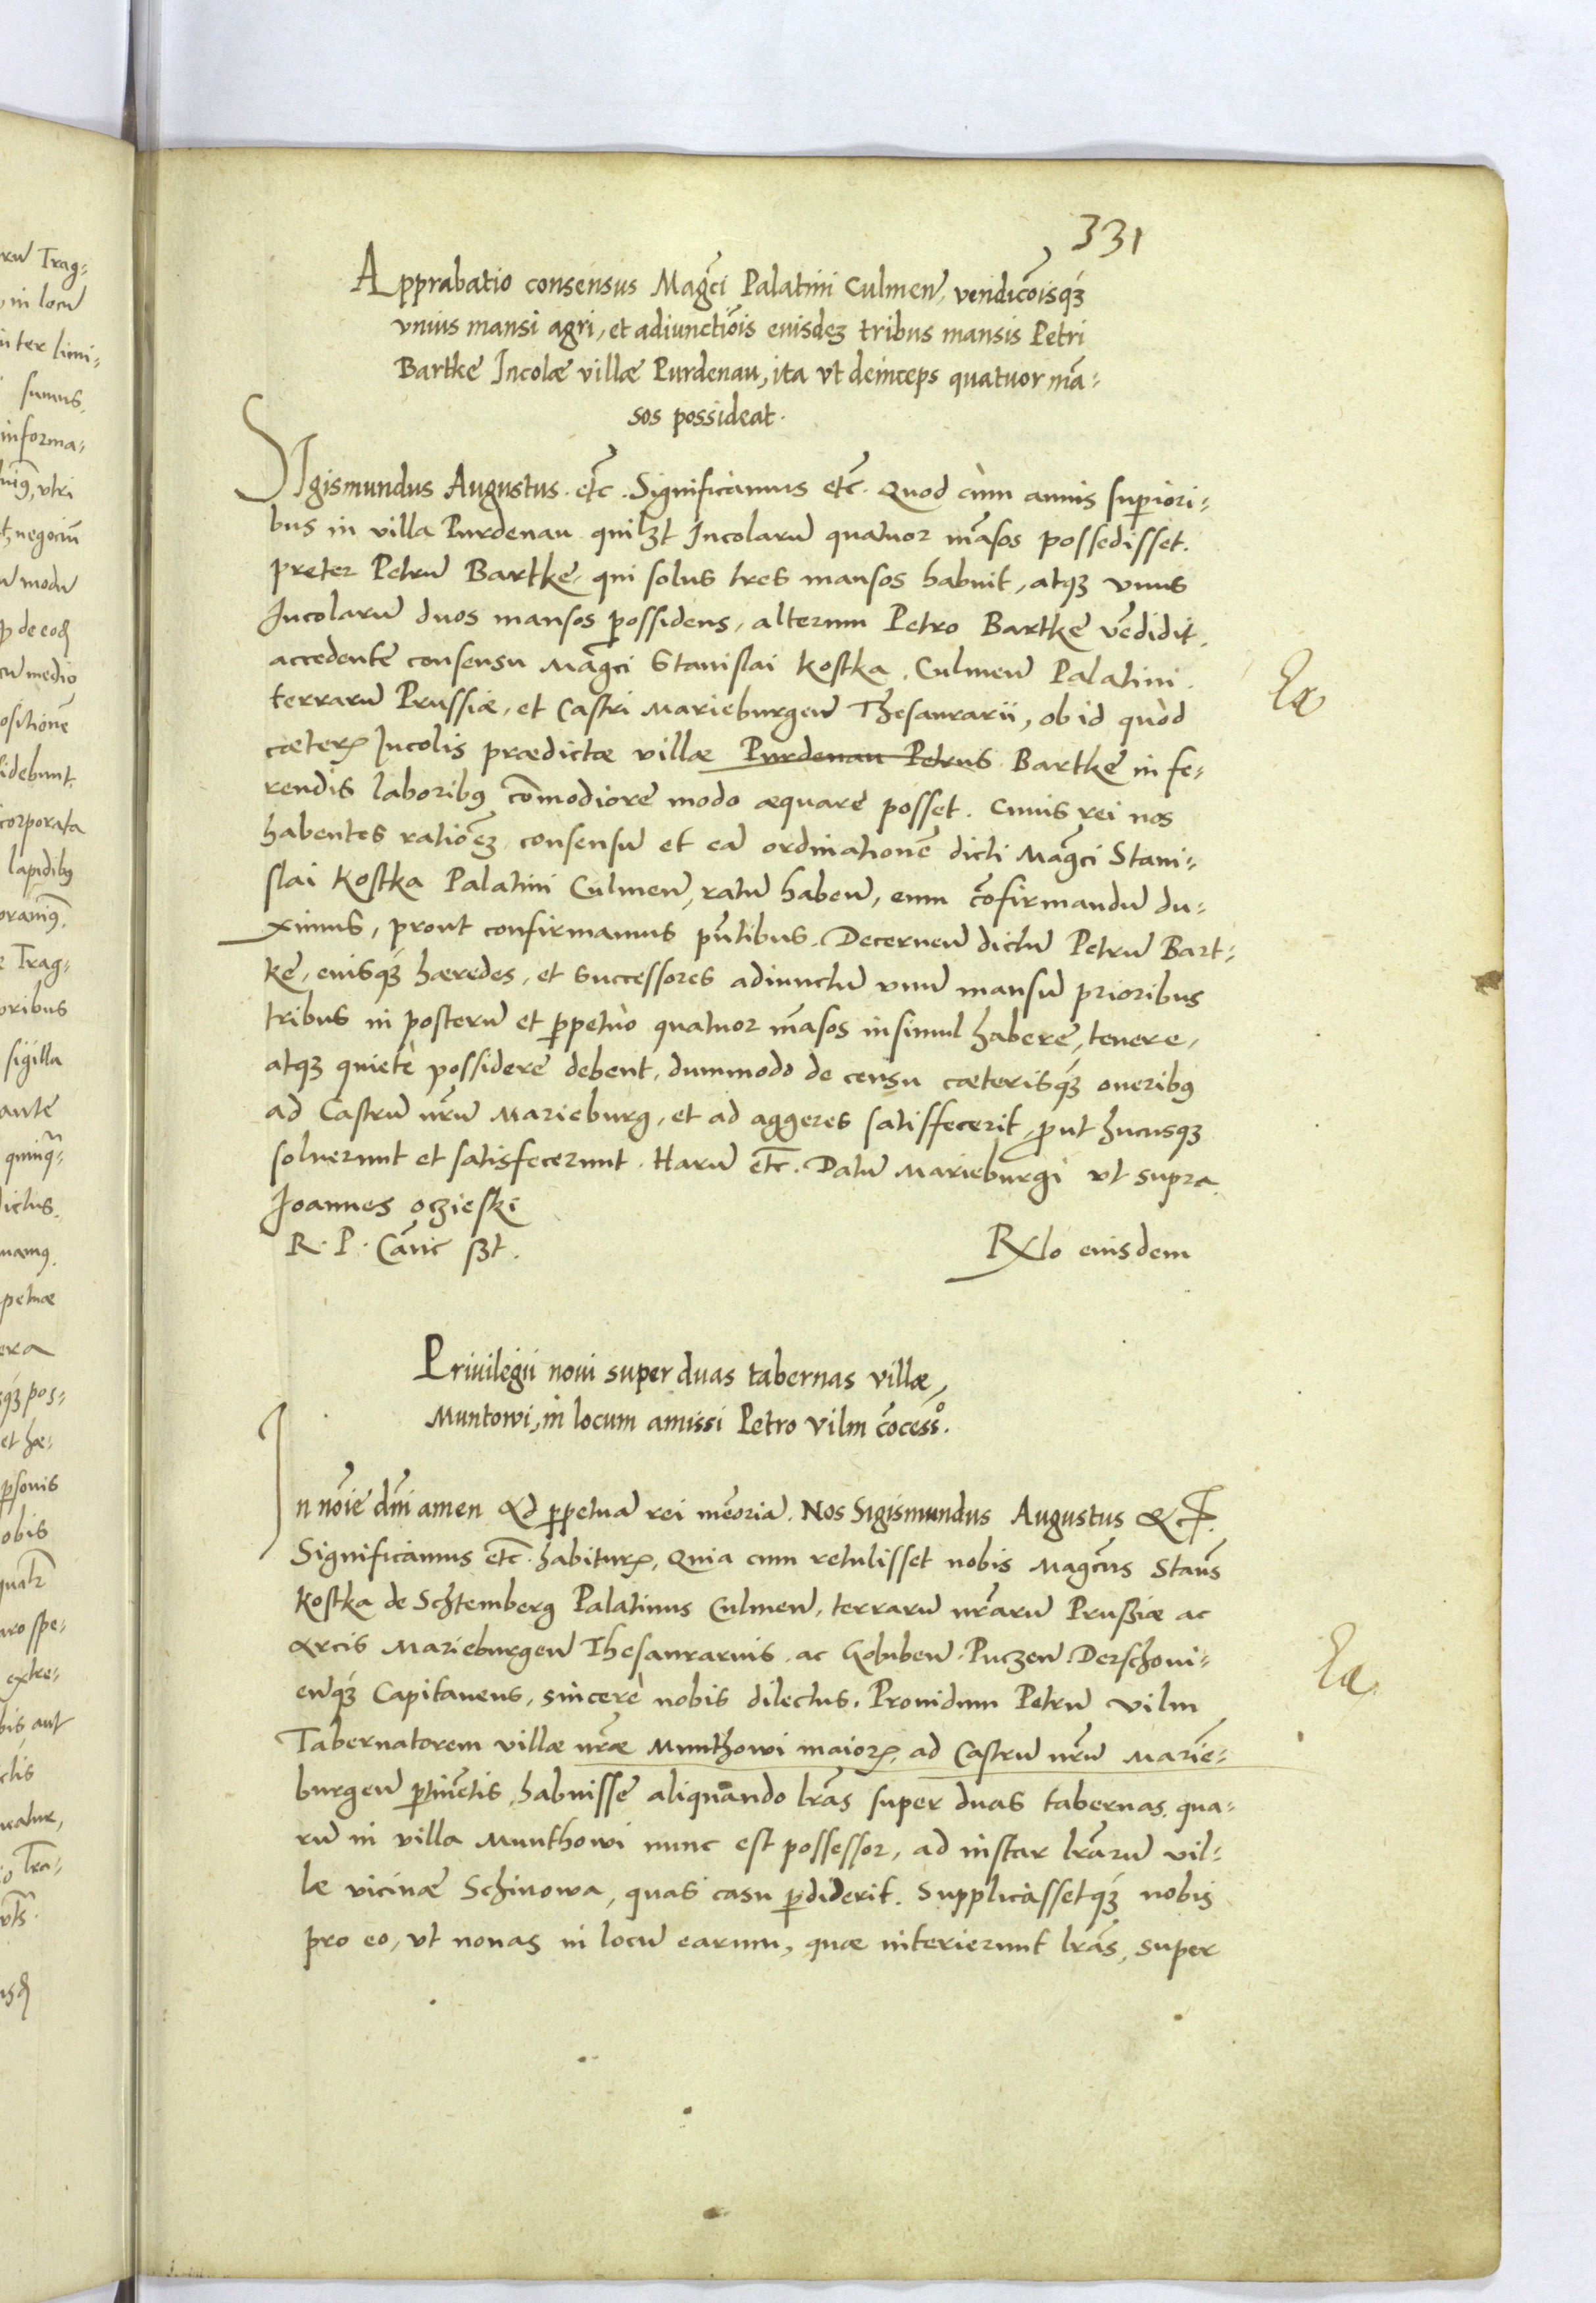 331
Apprabatio consensus Mag̃ci Palatini Culmen̄, vendic̃oisq́ꝫ
vnius mansi agri, et adiuncti͠ois euisdeꝫ tribus mansis Petri
Bartke Incolæ villæ Purdenau, ita vt deinceps quatuor mã-
sos possideat.
SIgismundus Augustus. etc̃. Significamus etc̃. Quod cùm annis superiori-
bus in villa Purdenau quilꝫt Incolarū quatuor mãsos possedisset.
preter Petrū Bartke, qui solus tres mansos habuit, atqꝫ vnus
Incolarū duos mansos possidens, alterum Petro Bartke vẽdidit.
accedente consensu Mag̃ci Stanislai Kostka. Culmen̄ Palatini.
terrarū Prussiæ, et Castri Marieburgen̄ Thesaurarii, ob id quòd
cæterꝭ Incolis prædictæ villæ Purdenau Petrus Bartke in fe-
rendis laboribꝰ cõmodiore modo æquare posset. Cuius rei nos
habentes rati͠oeꝫ consensū et eā ordinationẽ dicti Mag̃ci Stani-
slai Kostka Palatini Culmen̄, ratū haben̄, eum cõfirmandū du-
ximus, prout confirmamus pñtibus. Decernen̄ dictū Petrū Bart-
ke, euisq́ꝫ hæredes, et successores adiunctū vnū mansū prioribus
tribus in posterū et ꝑpetuò quatuor mãsos insimul habere, tenere,
atqꝫ quietè possidere debent, dummodo de censu cæterisq́ꝫ oneribꝰ
ad Castrū nr̃ū Marieburg, et ad aggeres satisfecerit, prout hucusqꝫ
soluerunt et satisfecerunt. Harū etc̃. Datū Marieburgi vt supra.
Joannes oczieski
R. P. Cãnc ſꝫt.
Rx̃lo euisdem
Ex
Priuilegii noui super duas tabernas villæ,
Muntowi, in locum amissi Petro Vilm cõcess°.
In nõie dñi amen Ad ꝑpetuā rei mẽoriā. Nos Sigismundus Augustus &c̃.
Significamus etc̃. habiturꝭ, Quia cum retulisset nobis Mag̃cus Stañs
Kostka de Schtemberg Palatinus Culmen̄, terrarū nr̃arū Prußiæ ac
Arcis Marieburgen̄ Thesaurarius, ac Golubien̄. Puczen̄. Derschoui-
en̄q́ꝫ Capitaneus, sincerè nobis dilectus. Prouidum Petrū Vilm
Tabernatorem villæ nr̃æ Munthowi maiorꝭ, ad Castrū nr̃ū Marie-
burgen̄ ꝑtinẽtis, habuisse aliquando lrãs super duas tabernas, qua-
rū in villa Munthowi nunc est possessor, ad instar lrãrū vil-
læ vicinæ Schinowa, quas casu ꝑdiderit. Supplicàssetq́ꝫ nobis
pro eo, vt nouas in locū earum, quæ interierunt lrãs, super
Ex